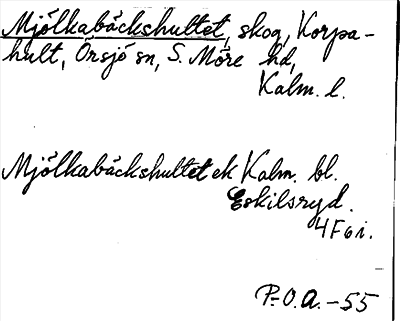 Mjölkabäckshultet, skog, Korpa-
hult, Örsjö sn, S. Möre hd,
Kalm. l.
Mjölkabäckshultet ek Kalm. bl.
Eskilsryd.
4F6i.
P.-O.A.-55